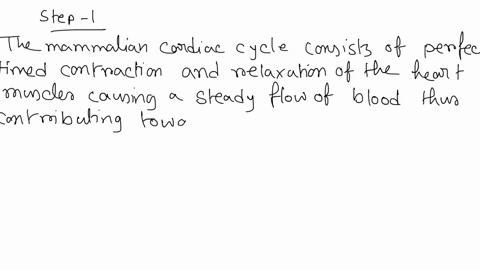 Step-1
The mammalian cardiac cycle consists of perfec
timed contraction and relaxation of the heart
muscles causing a steady flow of blood thus
contributing towa